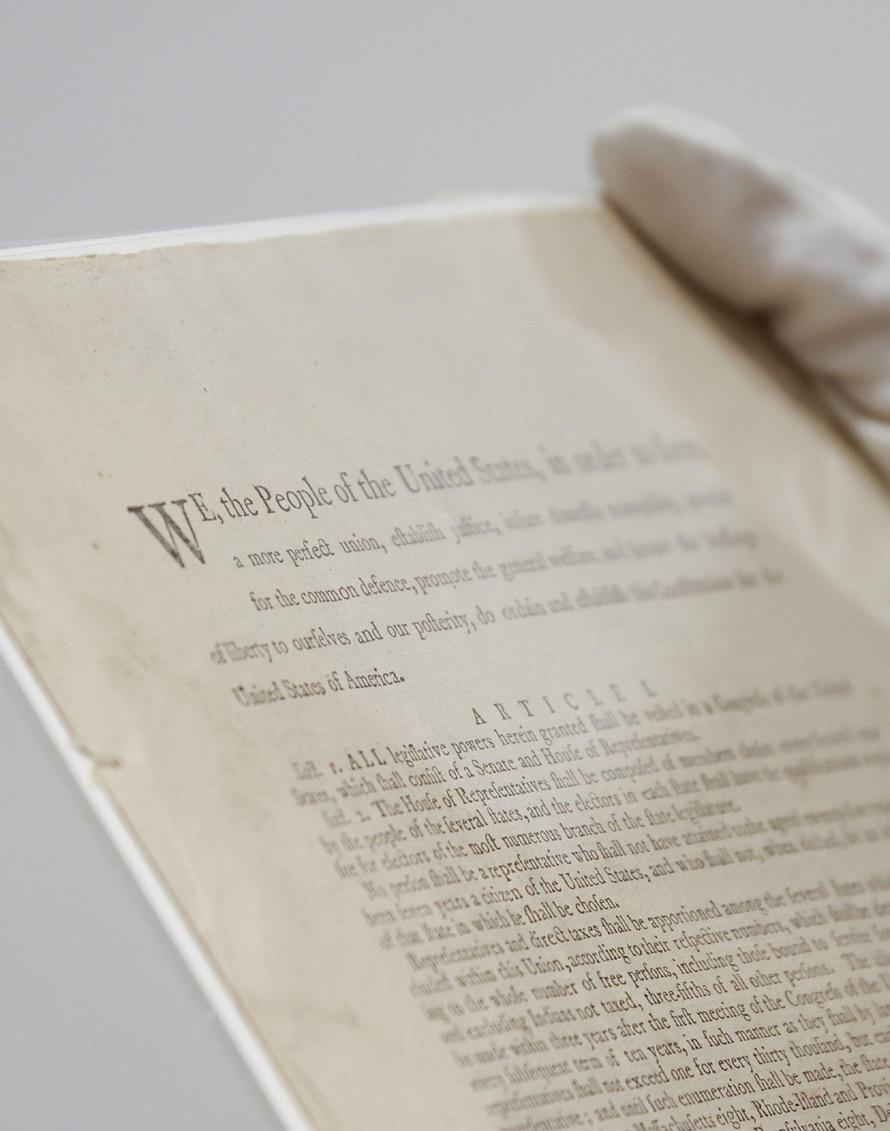 WE, the People of the United States, in order to form
a more perfect union, eſtabliſh juſtice, inſure domeſtic
for the common defence, promote the general welfare, and ſecure the
of liberty to ourſelves and our poſterity, do ordain and eſtabliſh this Conſtitution for the
United States of America.
ARTICLE I.
Sect. 1. ALL legiſlative powers herein granted ſhall be veſted in a Congreſs of the United
States, which ſhall conſiſt of a Senate and Houſe of Repreſentatives.
Sect. 2. The Houſe of Repreſentatives ſhall be compoſed of members choſen every ſecond year
by the people of the ſeveral ſtates, and the electors in each ſtate ſhall have the qualifications
ſite for electors of the moſt numerous branch of the ſtate legiſlature.
No perſon ſhall be a repreſentative who ſhall not have attained to the age of
been ſeven years a citizen of the United States, and who ſhall not, when elected, be an
of that ſtate in which he ſhall be choſen.
Repreſentatives and direct taxes ſhall be apportioned among the ſeveral ſtates
cluded within this Union, according to their reſpective numbers, which ſhall be
ing to the whole number of free perſons, including thoſe bound to ſervice
and excluding Indians not taxed, three-fifths of all other perſons. The
be made within three years after the firſt meeting of the Congreſs of the
every ſubſequent term of ten years, in ſuch manner as they ſhall by
repreſentatives ſhall not exceed one for every thirty thouſand, but
preſentative; and until ſuch enumeration ſhall be made, the ſtate
Maſſachuſetts eight, Rhode-Iſland and
Pennſylvania eight,